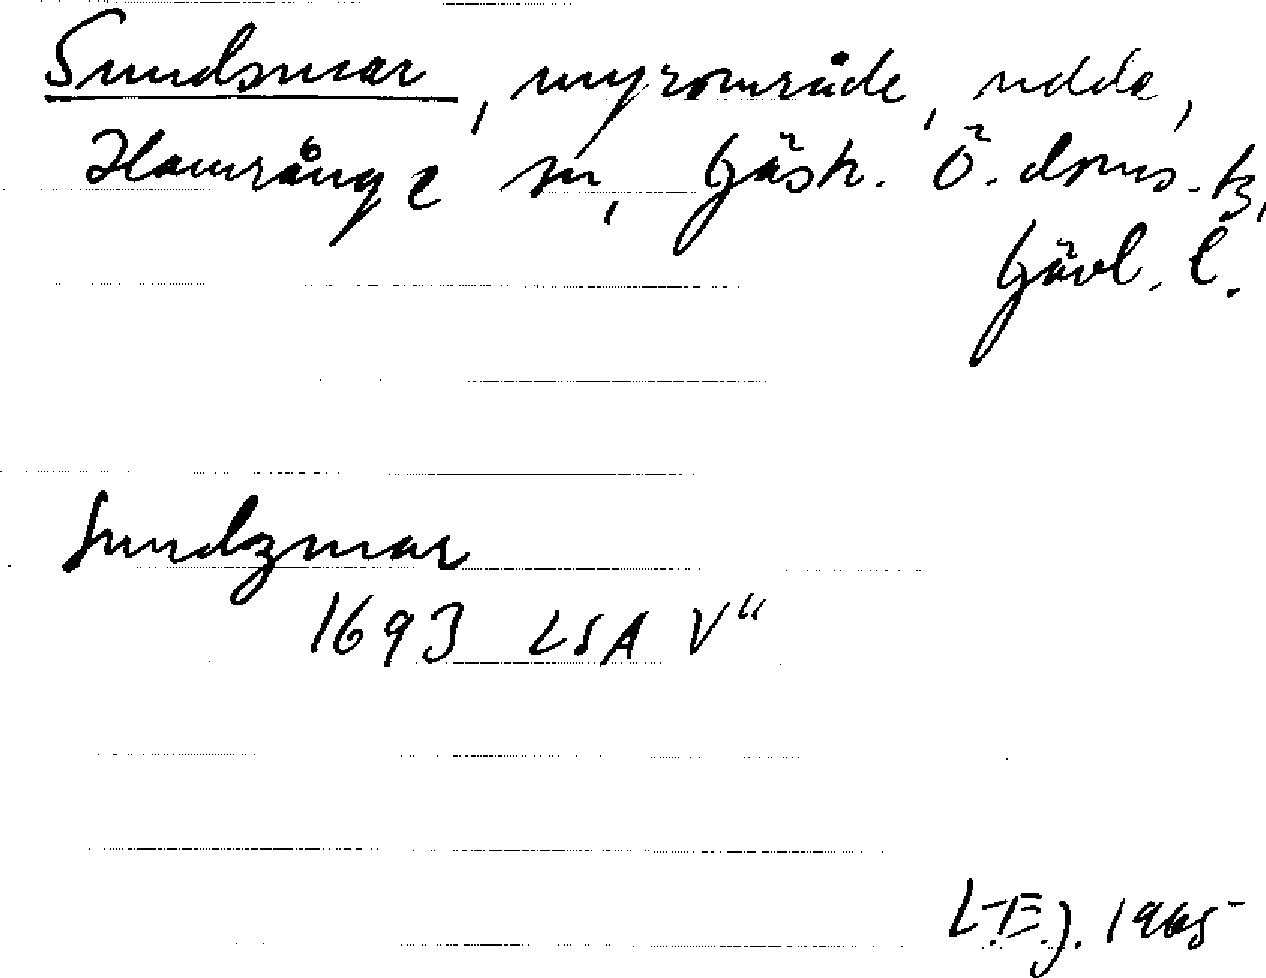 Sundsmar, myrområde, udde,
Hamrånge sn, Gäsh. Ö. doms. tz,
Gävl. l.
Sundzmar
1693 LSA V"
L.E.J. 1965